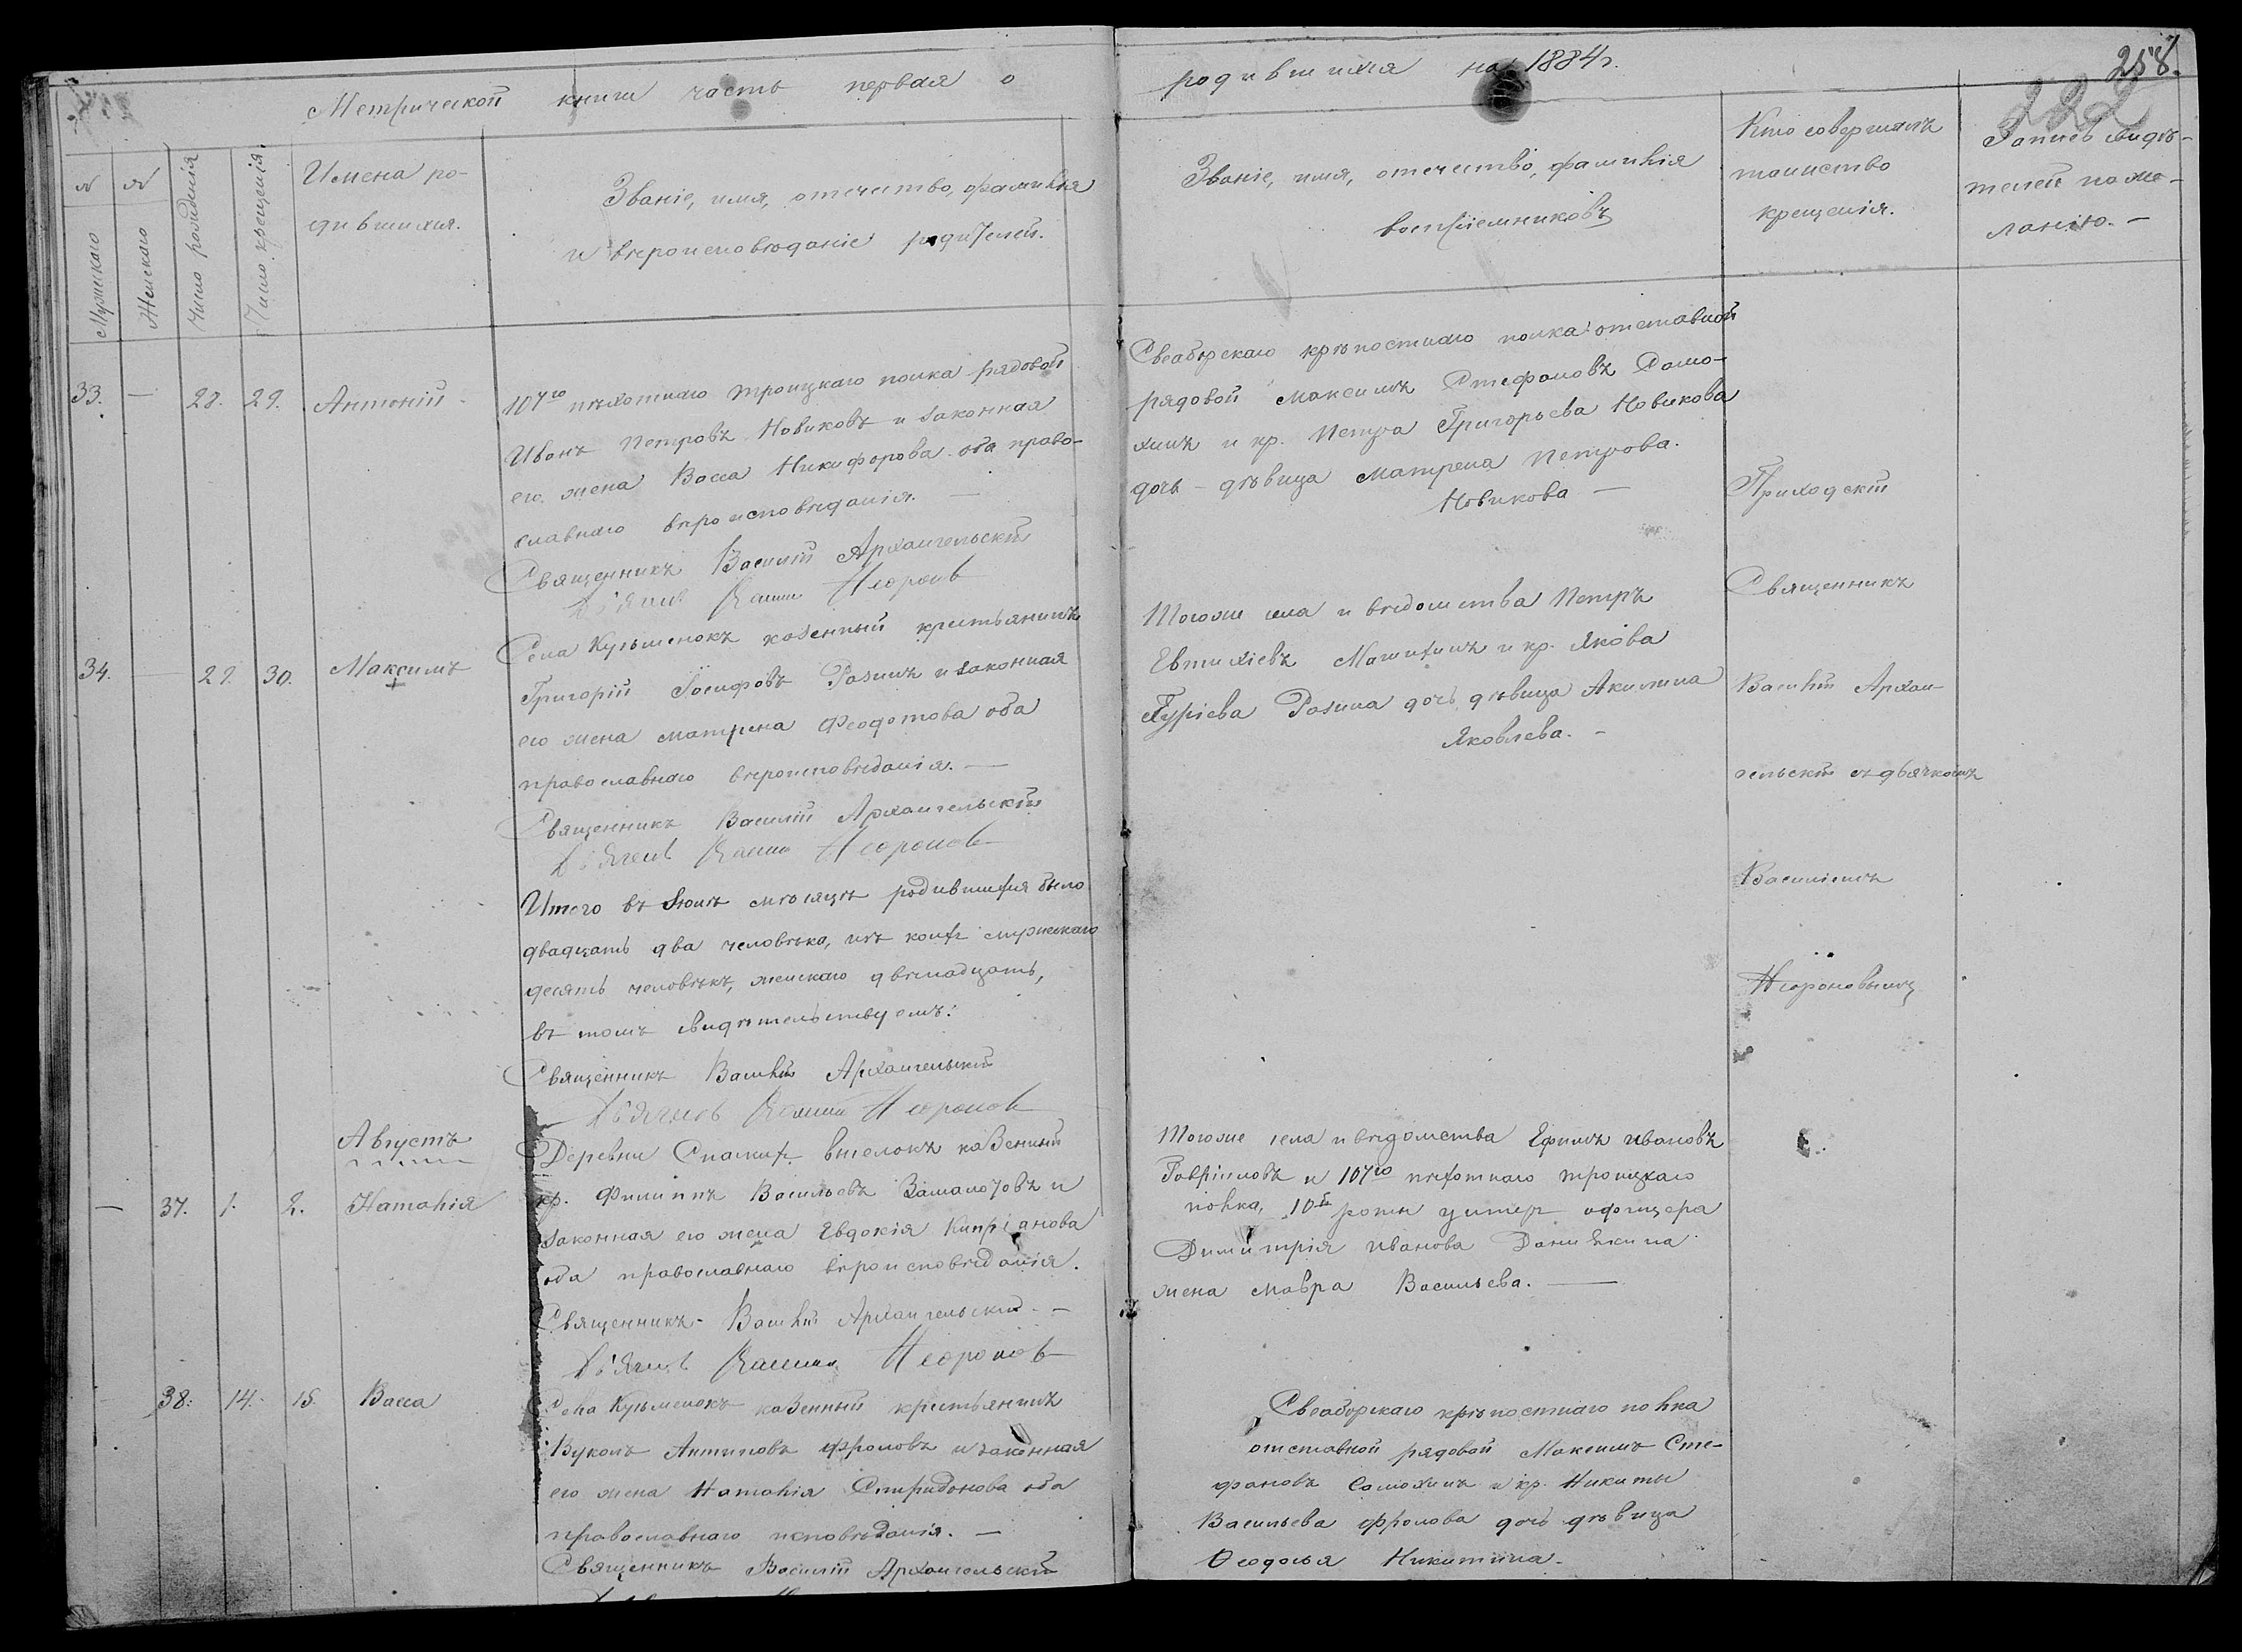 Метрической книги часть первая о
родившихся на 1884 г.
258.
222
№ Мужскаго
№ Женскаго
Число рожденія
Число крещенія.
Имена ро-
дившихся.
Званіе, имя, отечество, фамилія
и вѣроисповѣданіе родителей.
Званіе, имя, отечество, фамилія
воспріемниковъ
Кто совершалъ
таинство
крещенія.
Запись свидѣ-
телей по же-
ланію. —
33. — 28. 29. Антоній
107го пѣхотнаго Троицкаго полка рядовой
Иванъ Петровъ Новиковъ и законная
его жена Васса Никифорова оба право-
славнаго вѣроисповѣданія. —
Священникъ Василій Архангельскій
Василій Неороновъ
Свеаборскаго крѣпостнаго полка отставной
рядовой Максимъ Стефановъ Само-
хинъ и кр. Петра Григорьева Новикова
дочь – дѣвица Матрена Петрова.
Новикова —
34. — 29. 30. Максимъ
Села Кузьменокъ казенный крестьянинъ
Григорій Іосифовъ Разинъ и законная
его жена Матрена Феодотова оба
православнаго вѣроисповѣданія. —
Священникъ Василій Архангельскій
Василій Неороновъ
Тогоже села и вѣдомства Петръ
Евтихіевъ и кр. Якова
Гуріева Разина дочь дѣвица Акилина
Яковлева. –
Приходскій
Священникъ
Василій Архан-
гельскій съ дьячкомъ
Василіемъ
Неороновымъ
Итого въ Іюлѣ мѣсяцѣ родившихся было
двадцать два человѣка, изъ коихъ мужескаго
десять человѣкъ, женскаго двѣнадцать,
въ томъ свидѣтельствуемъ:
Священникъ Василій Архангельскій
Василій Неороновъ
Августъ
— 37. 1. 2. Наталія
Деревни выселокъ казенный
кр. Филиппъ Васильевъ и
законная его жена Евдокія Кипріанова
оба православнаго вѣроисповѣданія.
Священникъ – Василій Архангельскій. –
Василій Неороновъ
Тогоже села и вѣдомства Ефимъ Ивановъ
Гавріиловъ и 107го пѣхотнаго Троицкаго
полка, 10й роты унтеръ офицера
Димитрія Иванова Данилкина
жена Мавра Васильева. —
38. 14. 15. Васса
Села Кузьменокъ казенный крестьянинъ
Вуколъ Антиповъ Фроловъ и законная
его жена Наталія Спиридонова оба
православнаго исповѣданія. —
Священникъ Василій Архангельскій
Свеаборскаго крѣпостнаго полка
отставной рядовой Максимъ Сте-
фановъ Самохинъ и кр. Никиты
Васильева Фролова дочь дѣвица
Ѳеодосья Никитина.